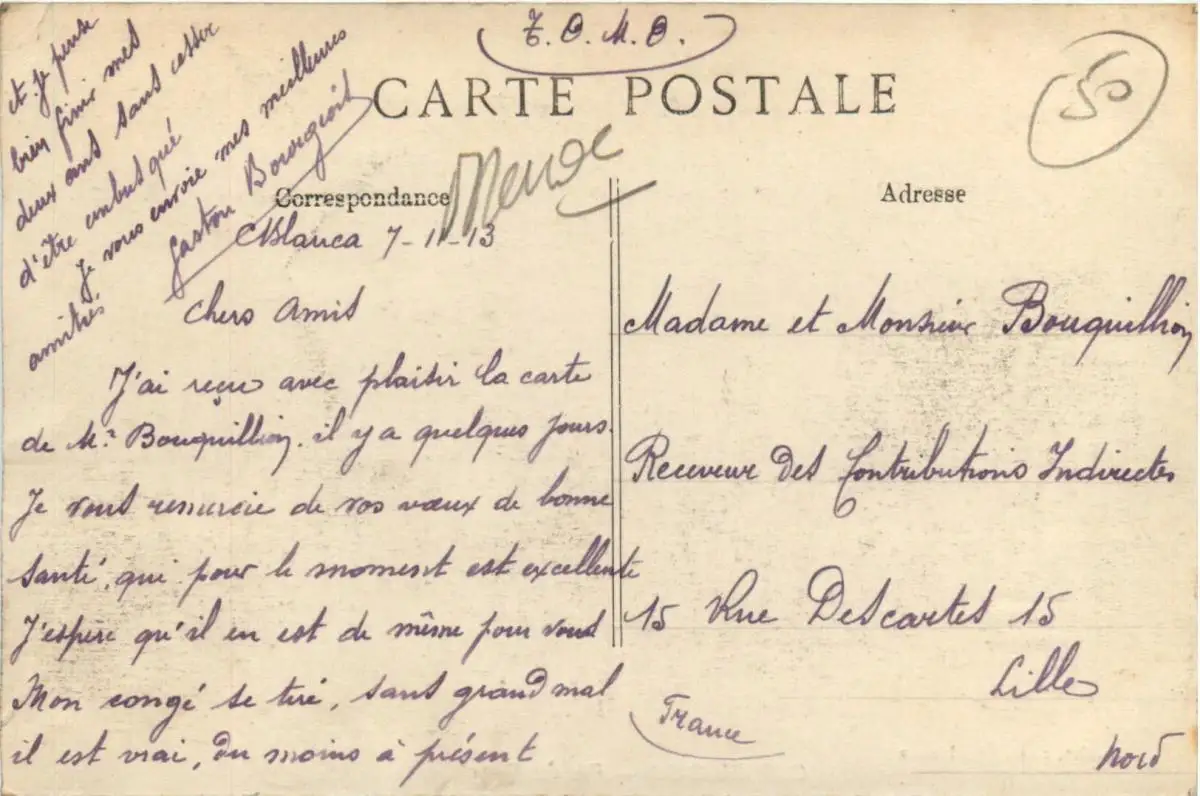 T.O.M.O.
CARTE POSTALE
50
Correspondance
Adresse
CBlanca 7-11-13
Chers Amis
J'ai reçu avec plaisir la carte
de Mr Bouquillion, il y a quelques jours.
Je vous remercie de vos vœux de bonne
santé, qui pour le moment est excellente
J'espère qu'il en est de même pour vous
Mon congé se tire, sans grand mal
il est vrai, du moins à présent
et je pense
bien finir mes
deux ans sans cesser
d'être embusqué
Je vous envoie mes meilleures
amitiés
Gaston Bourgeois
Madame et Monsieur Bouquillion
Receveur des Contributions Indirectes
15 Rue Descartes 15
Lille
France
Nord